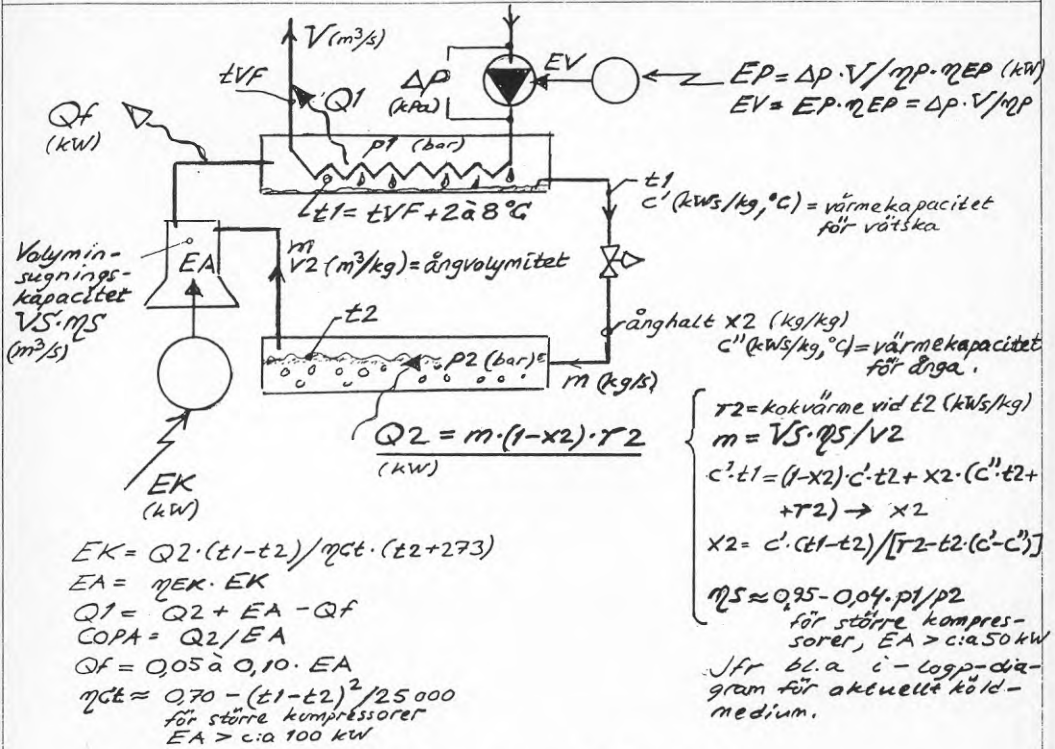 V (m³/s)
tVF
Q1
Δp
(kPa)
EV
EP = Δp·V/ηp·ηEP (kW)
EV = EP·ηEP = Δp·V/ηp
Qf
(kW)
p1 (bar)
t1 = tVF + 2 à 8 °C
t1
c' (kWs/kg,°C) = värmekapacitet
för vätska
Volymin-
sugnings-
kapacitet
VS·ηS
(m³/s)
EA
m
v2 (m³/kg) = ångvolymitet
t2
p2 (bar)
m (kg/s)
ånghalt x2 (kg/kg)
c" (kWs/kg,°C) = värmekapacitet
för ånga.
EK
(kW)
Q2 = m·(1-x2)·r2
(kW)
r2 = kokvärme vid t2 (kWs/kg)
m = VS·ηS/v2
c'·t1 = (1-x2)·c'·t2 + x2·(c"·t2 +
+r2) → x2
x2 = c'·(t1-t2)/[r2-t2·(c'-c")]
ηS ≈ 0,95 - 0,04·p1/p2
för större kompres-
sorer, EA > c:a 50 kW
Jfr bl.a i-logp-dia-
gram för aktuellt köld-
medium.
EK = Q2·(t1-t2)/ηct·(t2+273)
EA = ηEK·EK
Q1 = Q2 + EA - Qf
COPA = Q2/EA
Qf = 0,05 à 0,10·EA
ηct ≈ 0,70 - (t1-t2)²/25000
för större kompressorer
EA > c:a 100 kW